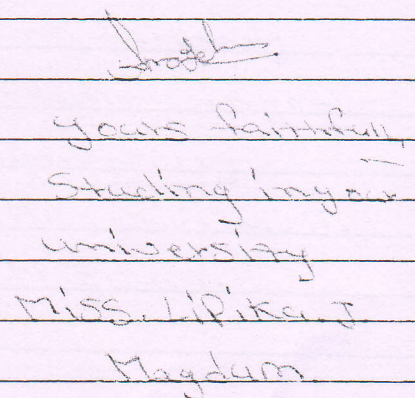 yours faithfull
Studing in your
university
Miss. Lipika J
Magdum.